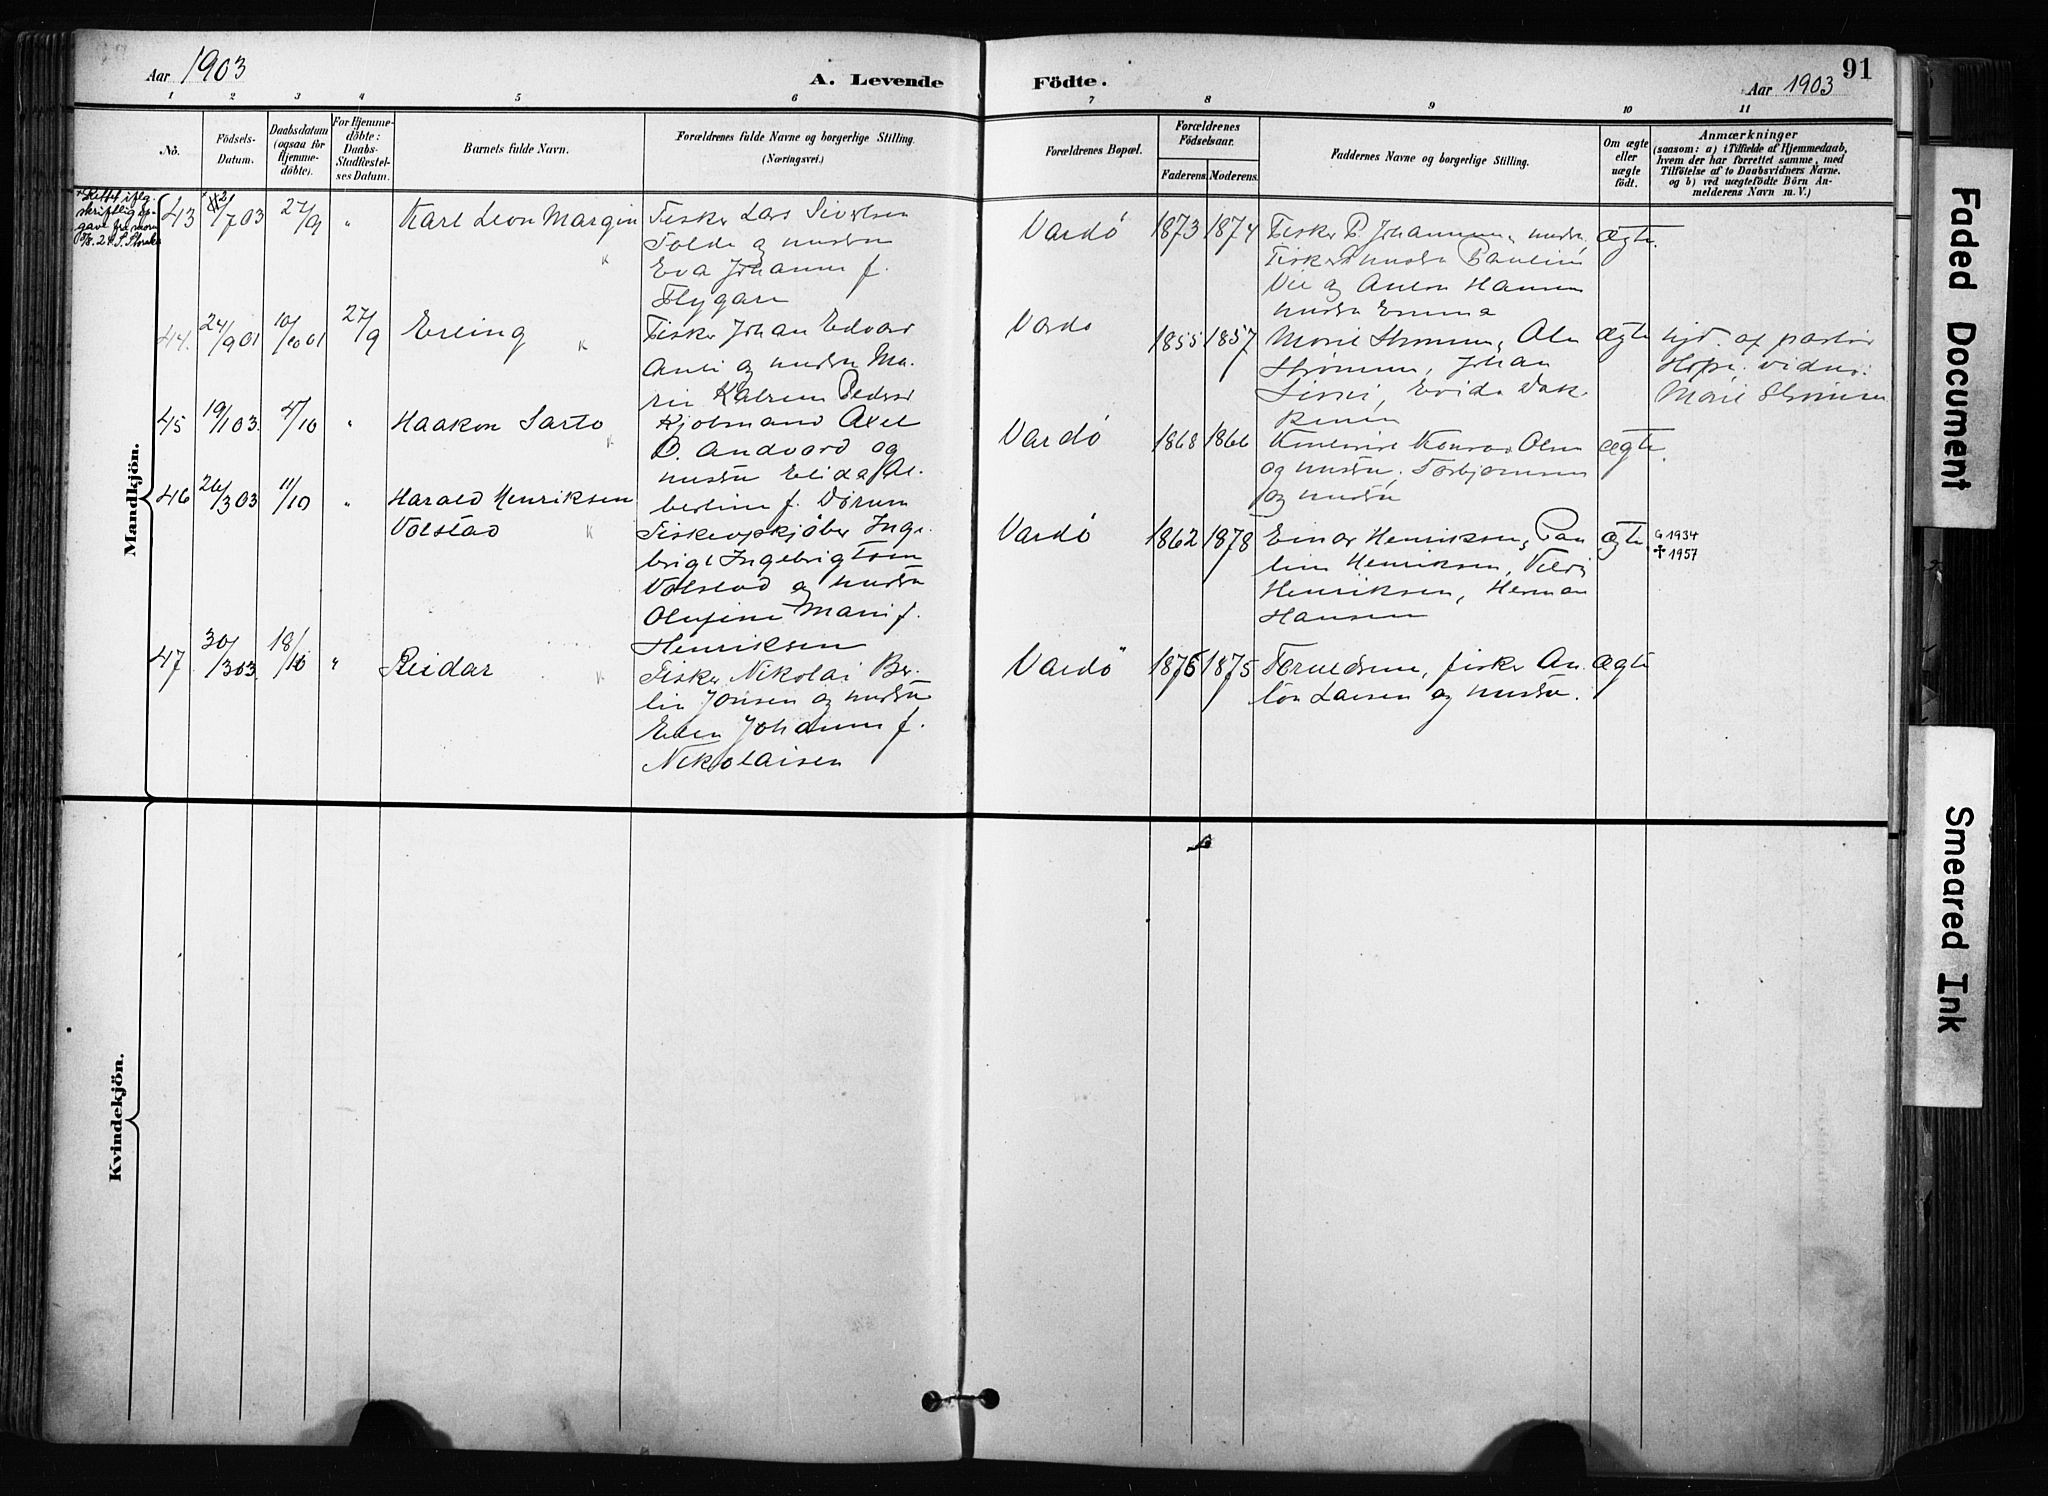 Aar 1903
A. Levende
Födte.
Aar 1903
91
1 2 3 4 5 6 7 8 9 10 11
No.
Födsels-
Datum.
Daabsdatum
(ogsaa for
Hjemme-
döbte).
For Hjemme-
döbte:
Daabs-
Stadfæstel-
ses Datum.
Barnets fulde Navn.
Forældrenes fulde Navne og borgerlige Stilling.
(Næringsvei.)
Forældrenes Bopæl.
Forældrenes
Födselsaar.
Faderens. Moderens.
Faddernes Navne og borgerlige Stilling.
Om ægte
eller
uægte
födt.
Anmærkninger
(saasom: a) i Tilfælde af Hjemmedaab,
hvem der har forrettet samme, med
Tilföielse af to Daabsvidners Navne.
og b) ved uægtefödte Börn An-
melderens Navn m. V.)
Mandkjön.
43
/7 03
27/9
"
Karl Leon Margin
Fisker Lars Sivertsen
Folde og hustru
Eva Johanne f.
Flygare
Vardö
1873 1874
Fisker P. Johannsen, hustru,
Fisker hustru Pauline
og Anton Hansen
hustru Emma
Ægte.
44.
24/9 01
10/10 01
27/9
Erling
Fisker Johan Edvard
og hustru Ma-
rie Katrine Peders
Vardö
1855 1857
Marie Strömme, Ole
Strömme, Johan
Ægte
hjd. af pastor
Hope. vidner:
Marie Strömme
45
19/1 03.
4/10
"
Haakon Sarto
Kjöbmand Axel
B. Andvord og
hustru Elida Al-
bertine f. Dörum
Vardö
1868 1866
Konrad Olsen
og hustru. Torbjörnsen
og hustru
Ægte.
46
26/3 03
11/10
"
Harald Henriksen
Volstad
Fiskeopkjöber Inge-
brigt Ingebrigtsen
Volstad og hustru
Olufine Marie f.
Henriksen
Vardö
1862 1878
Einar Henriksen, Pau-
line Henriksen,
Henriksen, Herman
Hansen
Ægte.
G 1934
✝ 1957
47.
30/3 03.
18/10
"
Reidar
Fisker Nikolai Ber-
lin Jonsen og hustru
Ellen Johanne f.
Nikolaisen
Vardö
1876 1875
Forældrene, fisker An-
ton Larsen og hustru.
Ægte
Kvindekjön.
Faded Document
Smeared Ink